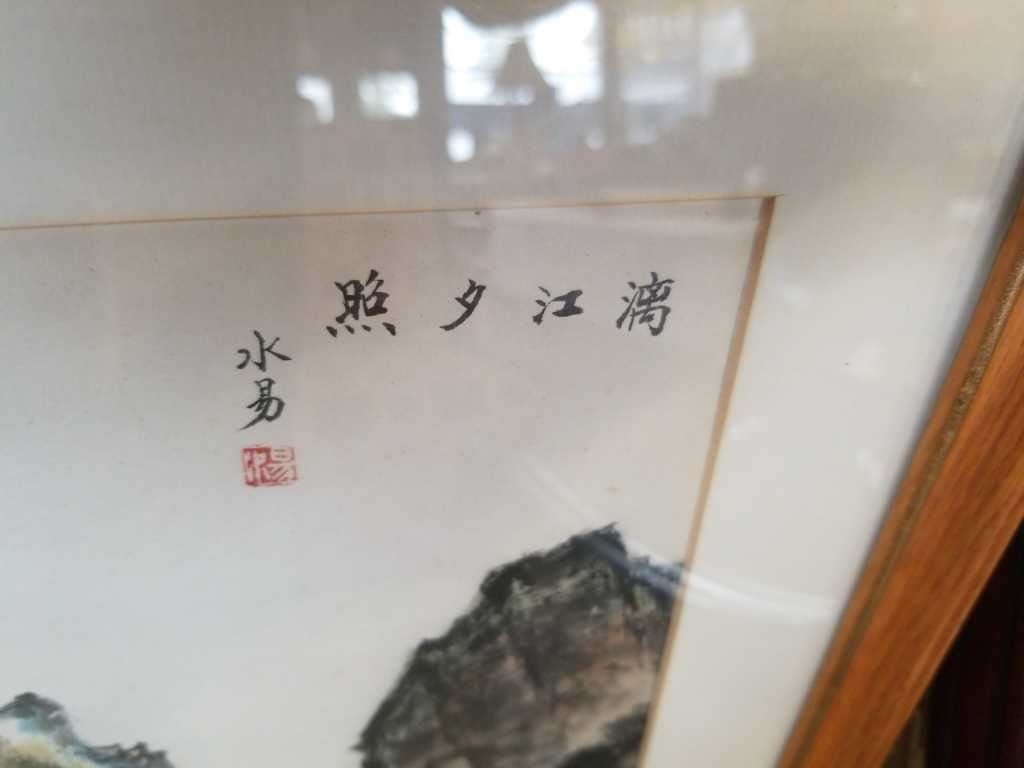 漓江夕照
水易